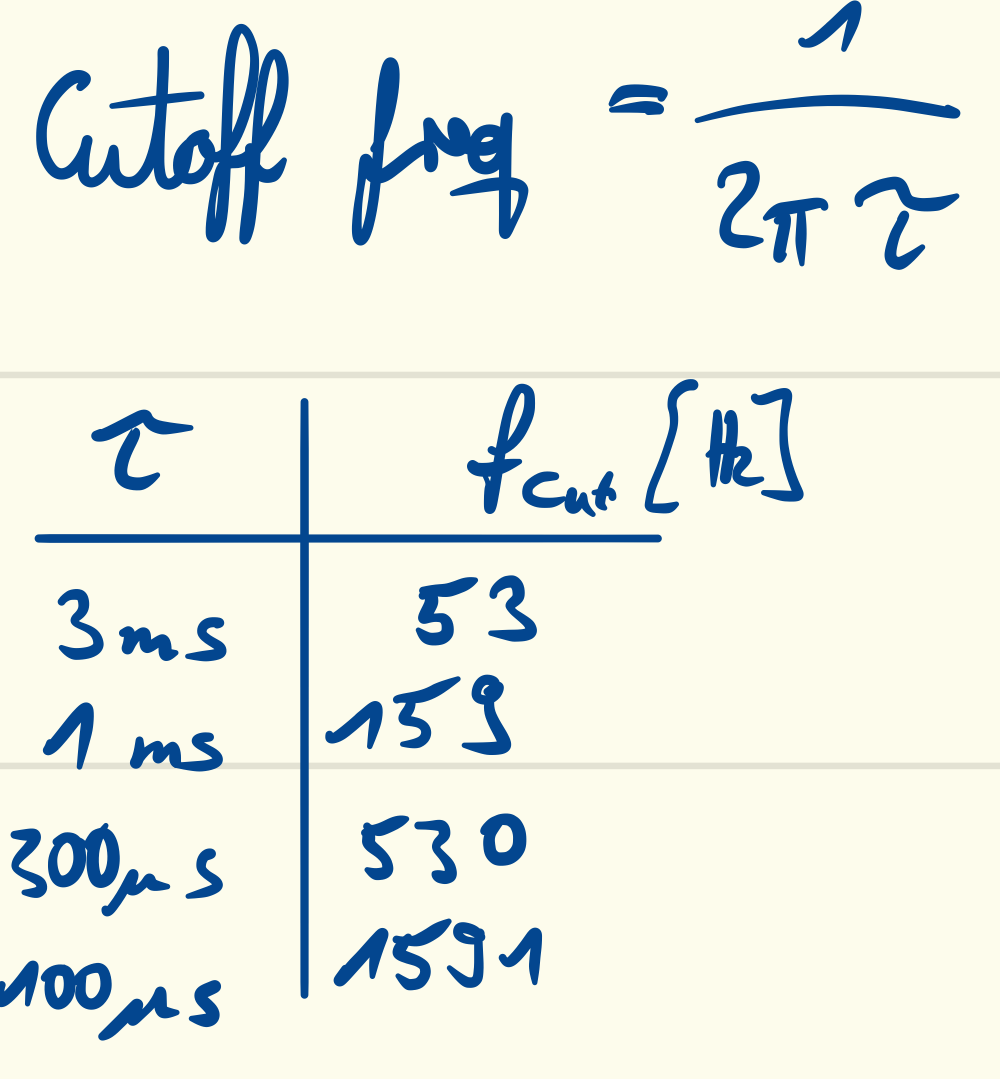 Cutoff freq = 1
2π τ
τ fcut [Hz]
3 ms 53
1 ms 159
300 μs 530
100 μs 1591